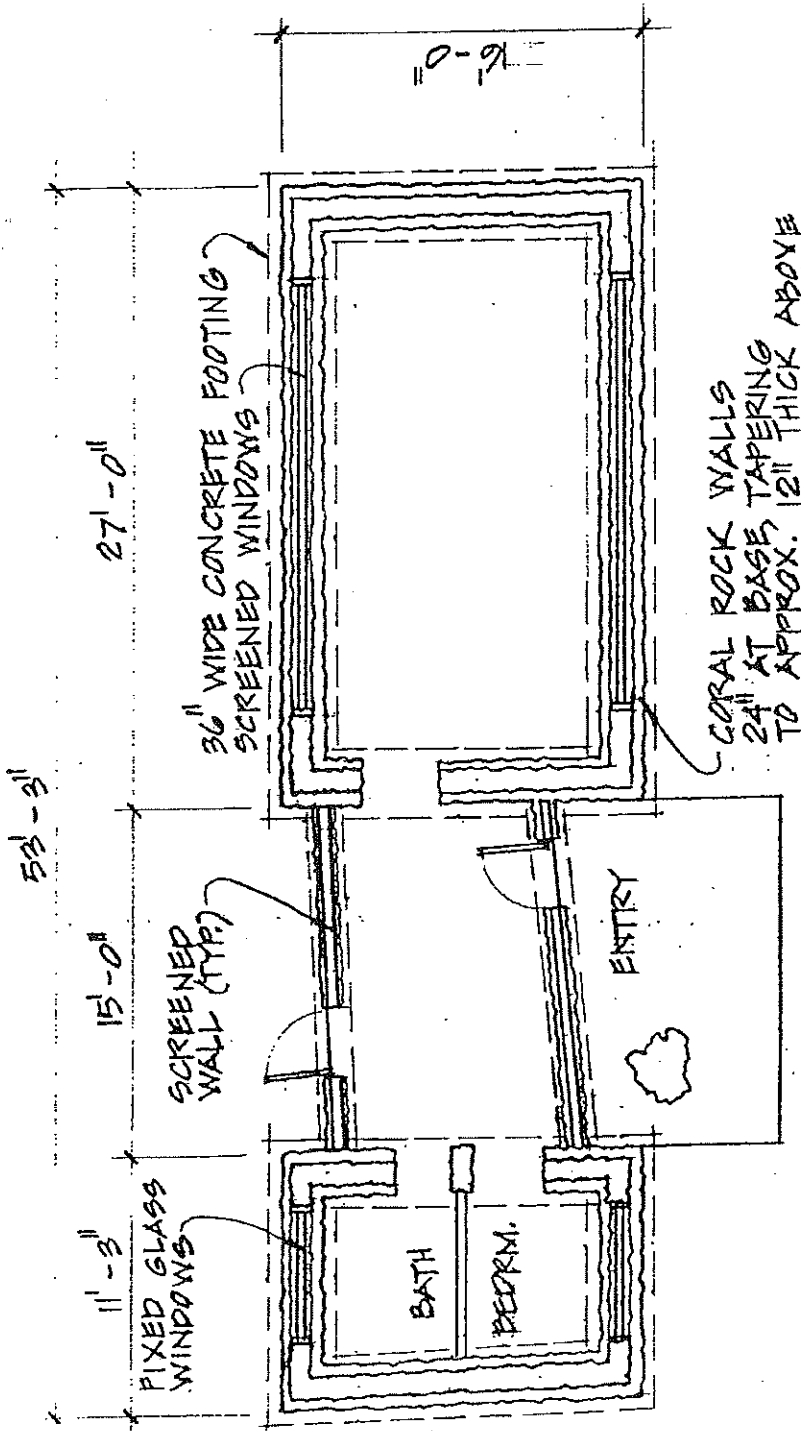 53'-3"
11'-3"
15'-0"
27'-0"
FIXED GLASS
WINDOWS
SCREENED
WALL (TYP.)
36" WIDE CONCRETE FOOTING
SCREENED WINDOWS
16'-0"
BATH
BEDRM.
ENTRY
CORAL ROCK WALLS
24" AT BASE TAPERING
TO APPROX. 12" THICK ABOVE